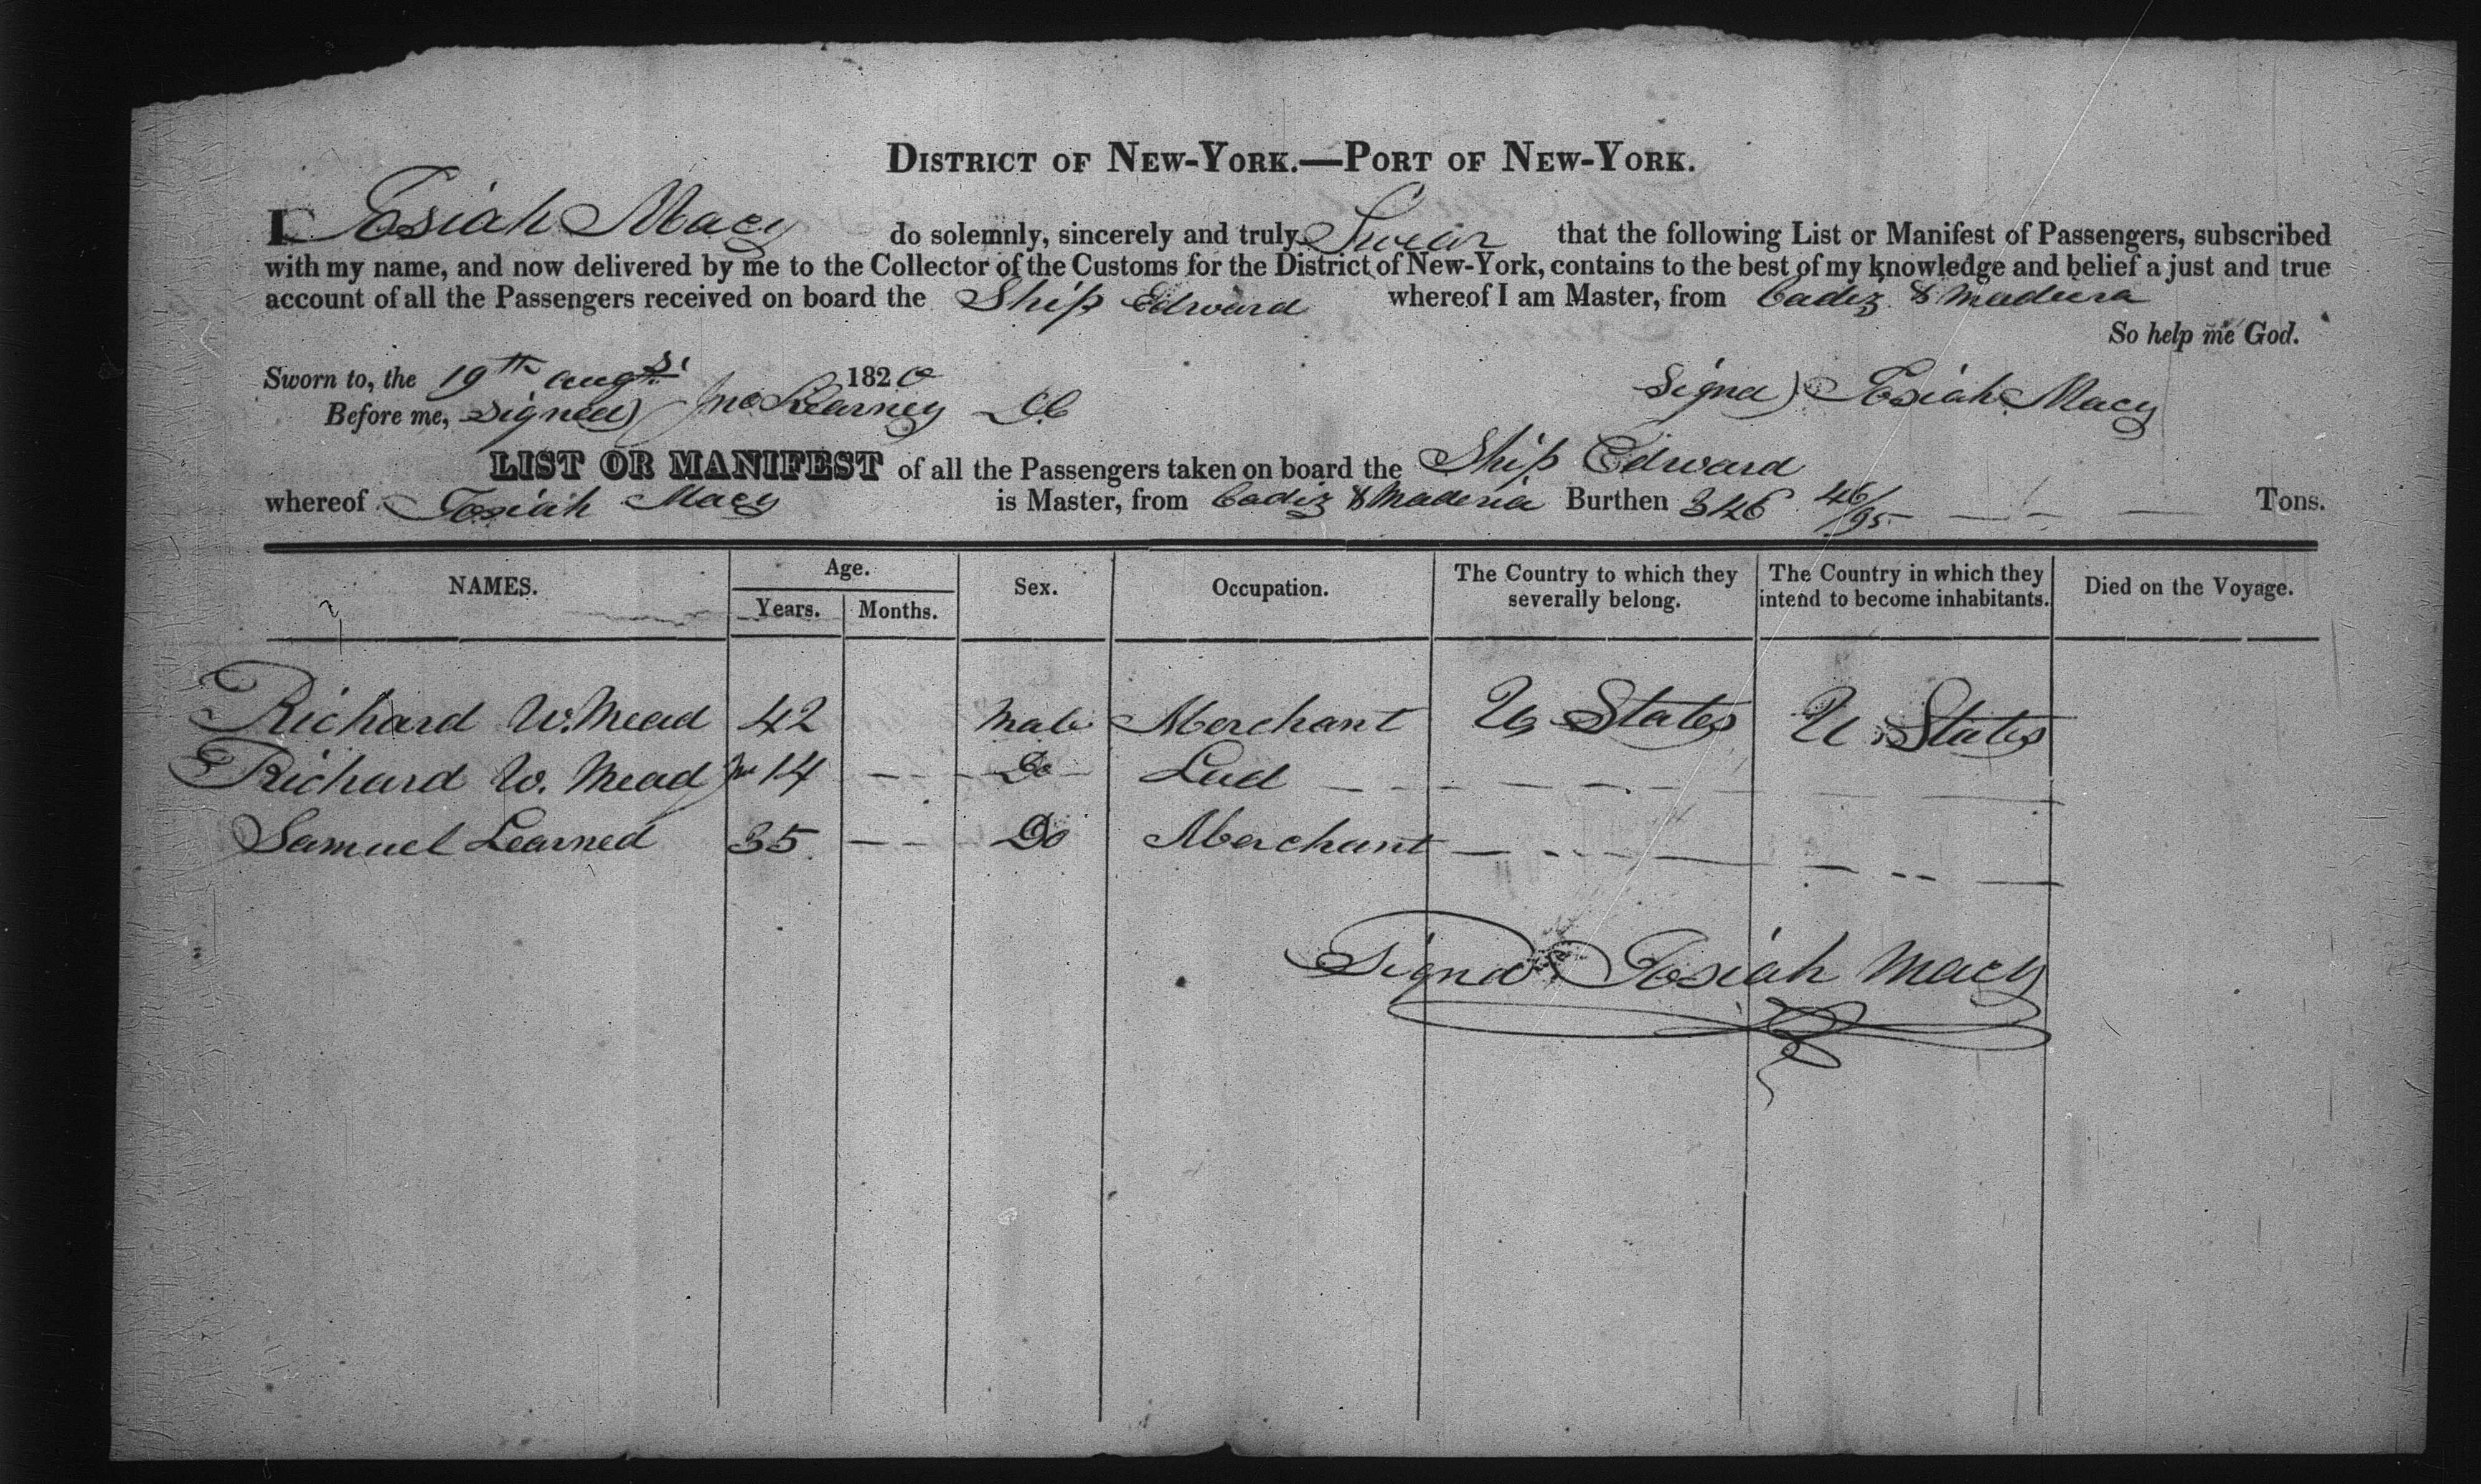 DISTRICT OF NEW-YORK.—PORT OF NEW-YORK.
I Josiah Macy do solemnly, sincerely and truly Swear that the following List or Manifest of Passengers, subscribed
with my name, and now delivered by me to the Collector of the Customs for the District of New-York, contains to the best of my knowledge and belief a just and true
account of all the Passengers received on board the Ship Edward whereof I am Master, from Cadiz & Madeira
So help me God.
Sworn to, the 19th Augst 1820 Signd) Josiah Macy
Before me, Signed) Jno Kearney DC
LIST OR MANIFEST of all the Passengers taken on board the Ship Edward
whereof Josiah Macy is Master, from Cadiz & Maderia Burthen 346 46/95 Tons.
NAMES. Age. Sex. Occupation. The Country to which they severally belong. The Country in which they intend to become inhabitants. Died on the Voyage.
Years. Months.
Richard W. Mead 42 Male Merchant U States U States
Richard W. Mead Jnr 14 — - - Do Lad — - - — — — —
Samuel Learned 35 — - - Do Merchant — - - - — — - - —
Signd Josiah Macy